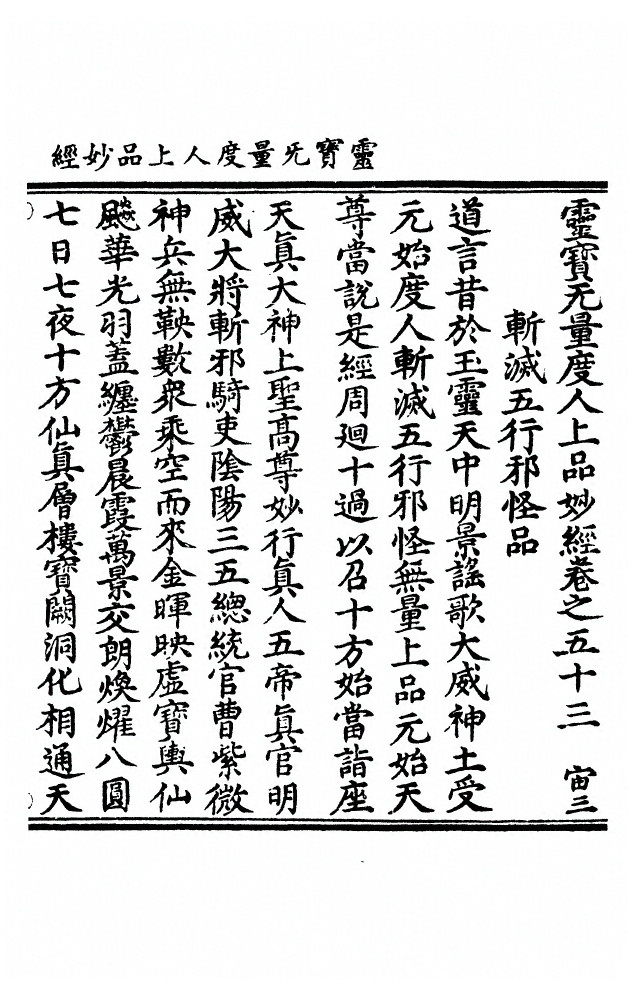 靈寶旡量度人上品妙經
靈寶无量度人上品妙經卷之五十三 宙三
斬滅五行邪怪品
道言昔於玉靈天中明景謠歌大威神土受
元始度人斬滅五行邪怪無量上品元始天
尊當說是經周迴十過以召十方始當詣座
天眞大神上聖高尊妙行眞人五帝眞官明
威大將斬邪騎吏陰陽三五總統官曹紫微
神兵無鞅數衆乘空而來金暉映虛寶輿仙
飇華光羽蓋纏鬱晨霞萬景交朗煥燿八圓
七日七夜十方仙眞層樓寶闕洞化相通天